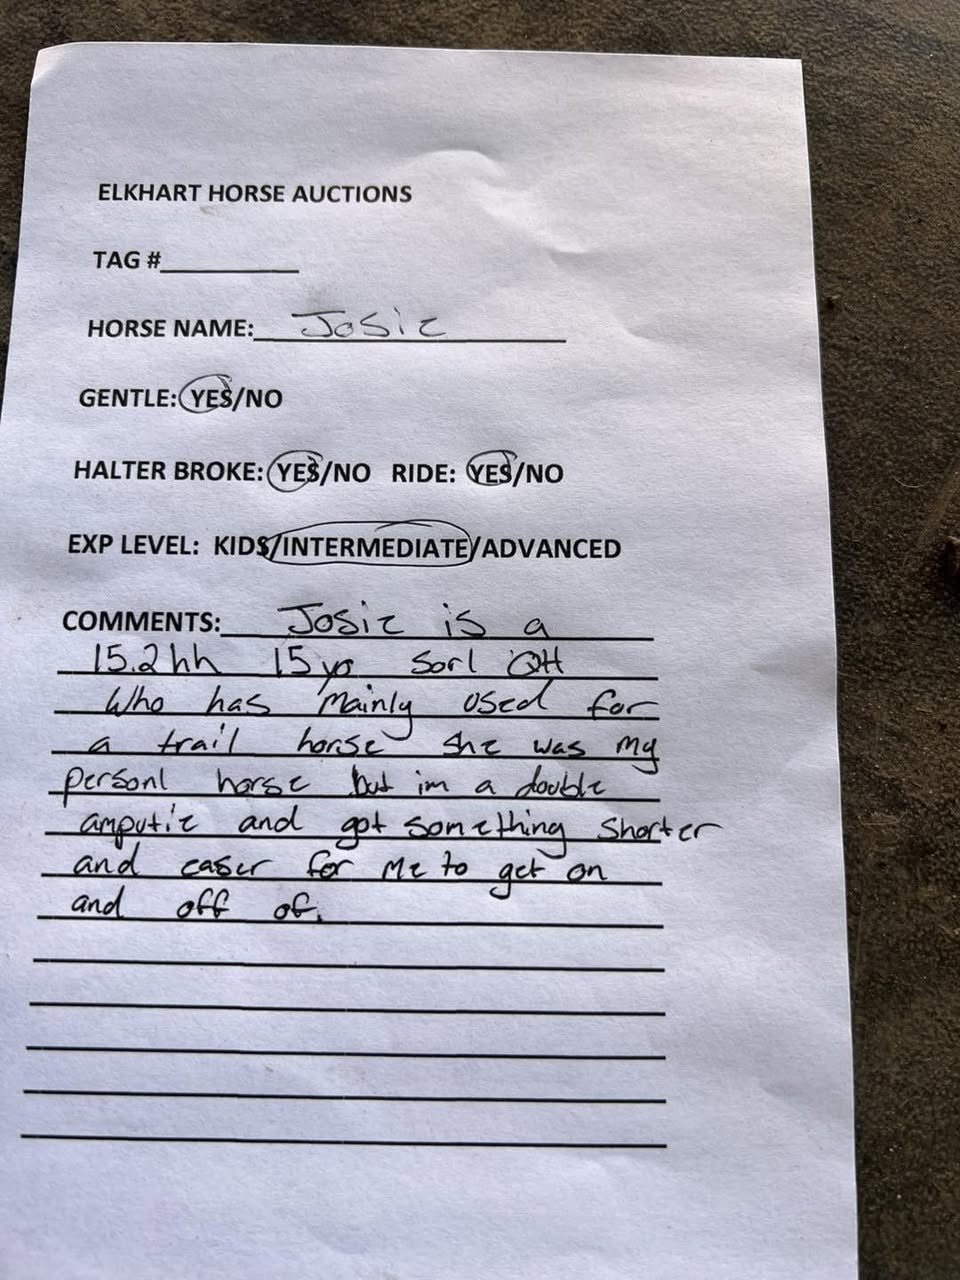 ELKHART HORSE AUCTIONS
TAG #
HORSE NAME: Josie
GENTLE: YES/NO
HALTER BROKE: YES/NO RIDE: YES/NO
EXP LEVEL: KIDS/INTERMEDIATE/ADVANCED
COMMENTS: Josie is a
15.2hh 15yo Sorl QH
Who has Mainly Used for
a trail horse she was my
personl horse but im a double
amputie and got something shorter
and easer for Me to get on
and off of.